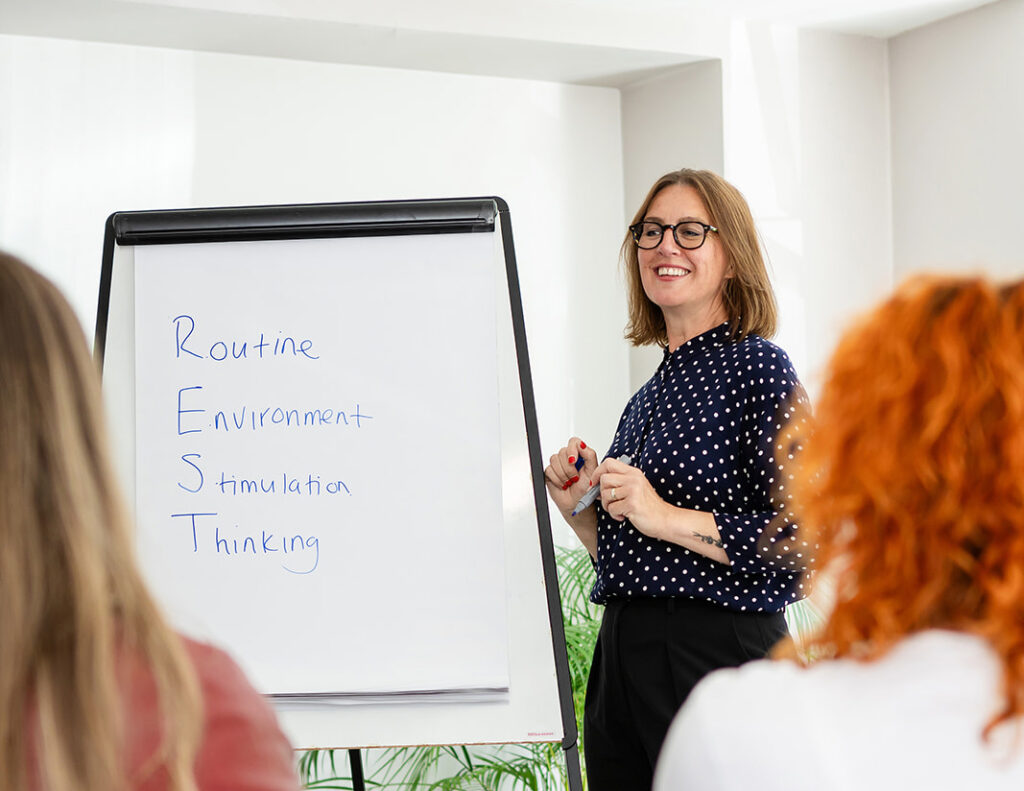 Routine
Environment
Stimulation
Thinking